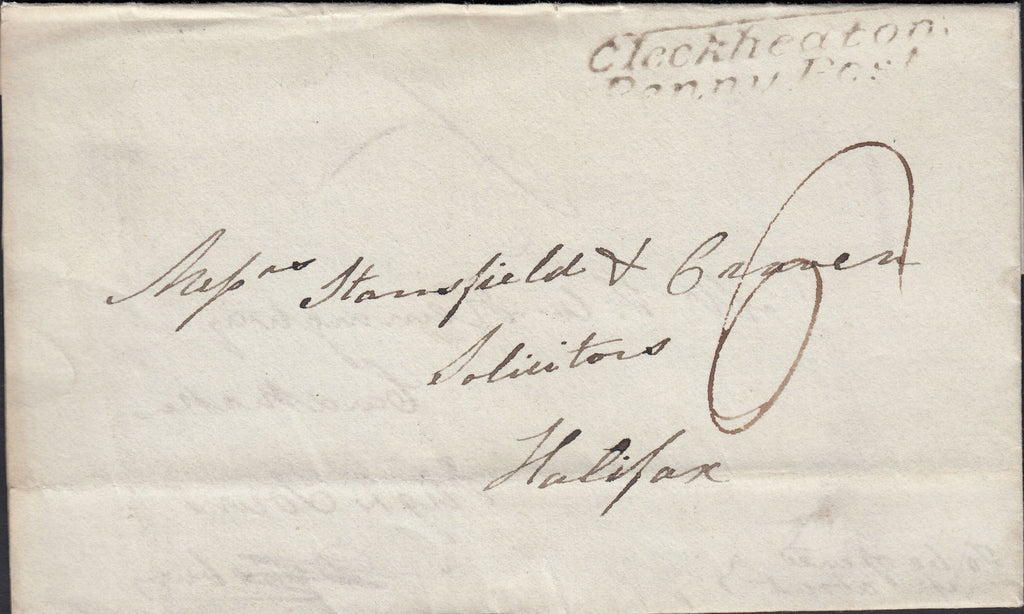 Cleckheaton
Penny Post
Messrs Stansfield & Craven
Solicitors
Halifax